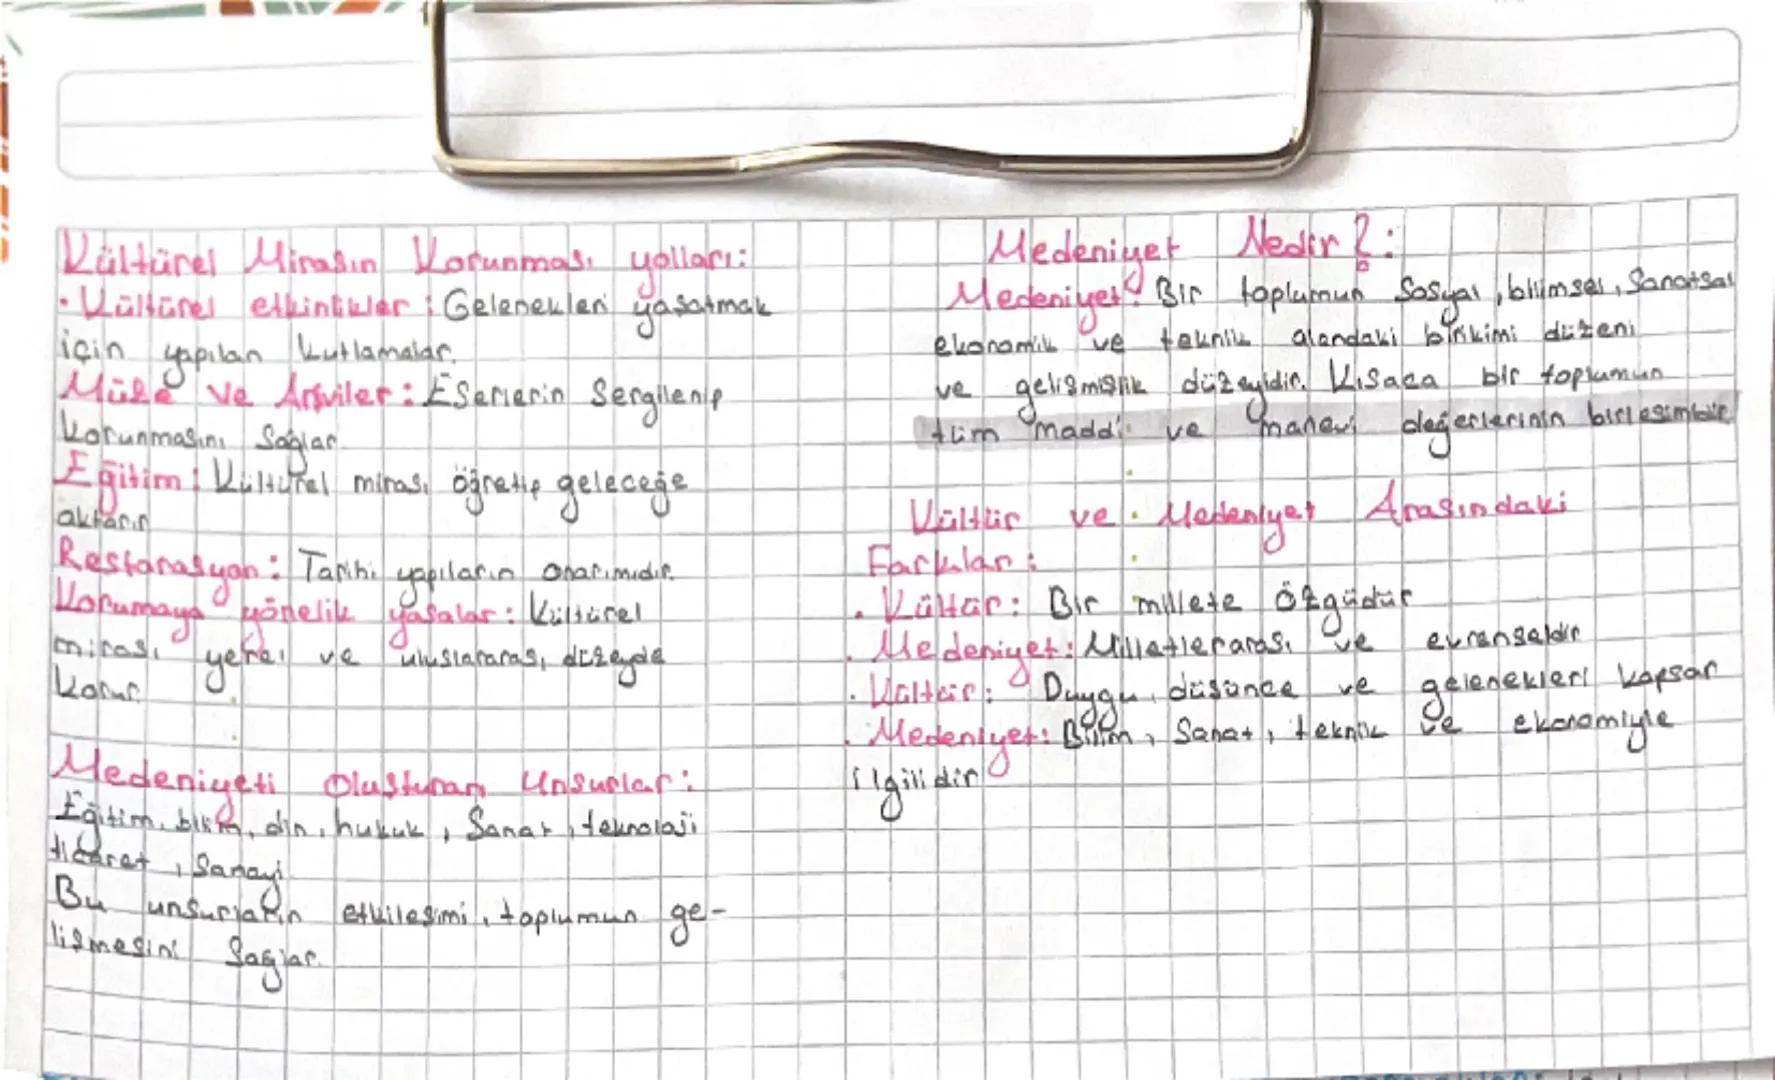 Kültürel Mirasın Korunması yolları:
• Kültürel etkinlikler : Gelenekleri yaşatmak
için yapılan kutlamalar.
Müze ve Arşivler : Eserlerin Sergilenip
korunmasını Sağlar.
Eğitim : Kültürel mirası öğretip geleceğe
aktarır
Restarasyon : Tarihi yapıların onarımıdır.
Korumaya yönelik yasalar : Kültürel
mirası yerel ve uluslararası düzeyde
korur.
Medeniyeti Oluşturan Unsurlar :
Eğitim, bilim, din, hukuk, Sanat, teknolaji
ticaret, Sanayi
Bu unsurların etkileşimi, toplumun ge-
lişmesini Sağlar.
Medeniyet Nedir ? :
Medeniyet : Bir toplumun Sosyal, bilimsel, Sanatsal
ekonomik ve teknik alandaki birikimi düzeni
ve gelişmişlik düzeyidir. Kısaca bir toplumun
tüm maddi ve manevi değerlerinin birleşimidir
Kültür ve Medeniyet Arasındaki
Farklar :
• Kültür : Bir millete Özgüdür
• Medeniyet : Milletlerarası ve evrenseldir
• Kültür : Duygu, düşünce ve gelenekleri kapsar
• Medeniyet : Bilim, Sanat, teknik ve ekonomiyle
ilgilidir